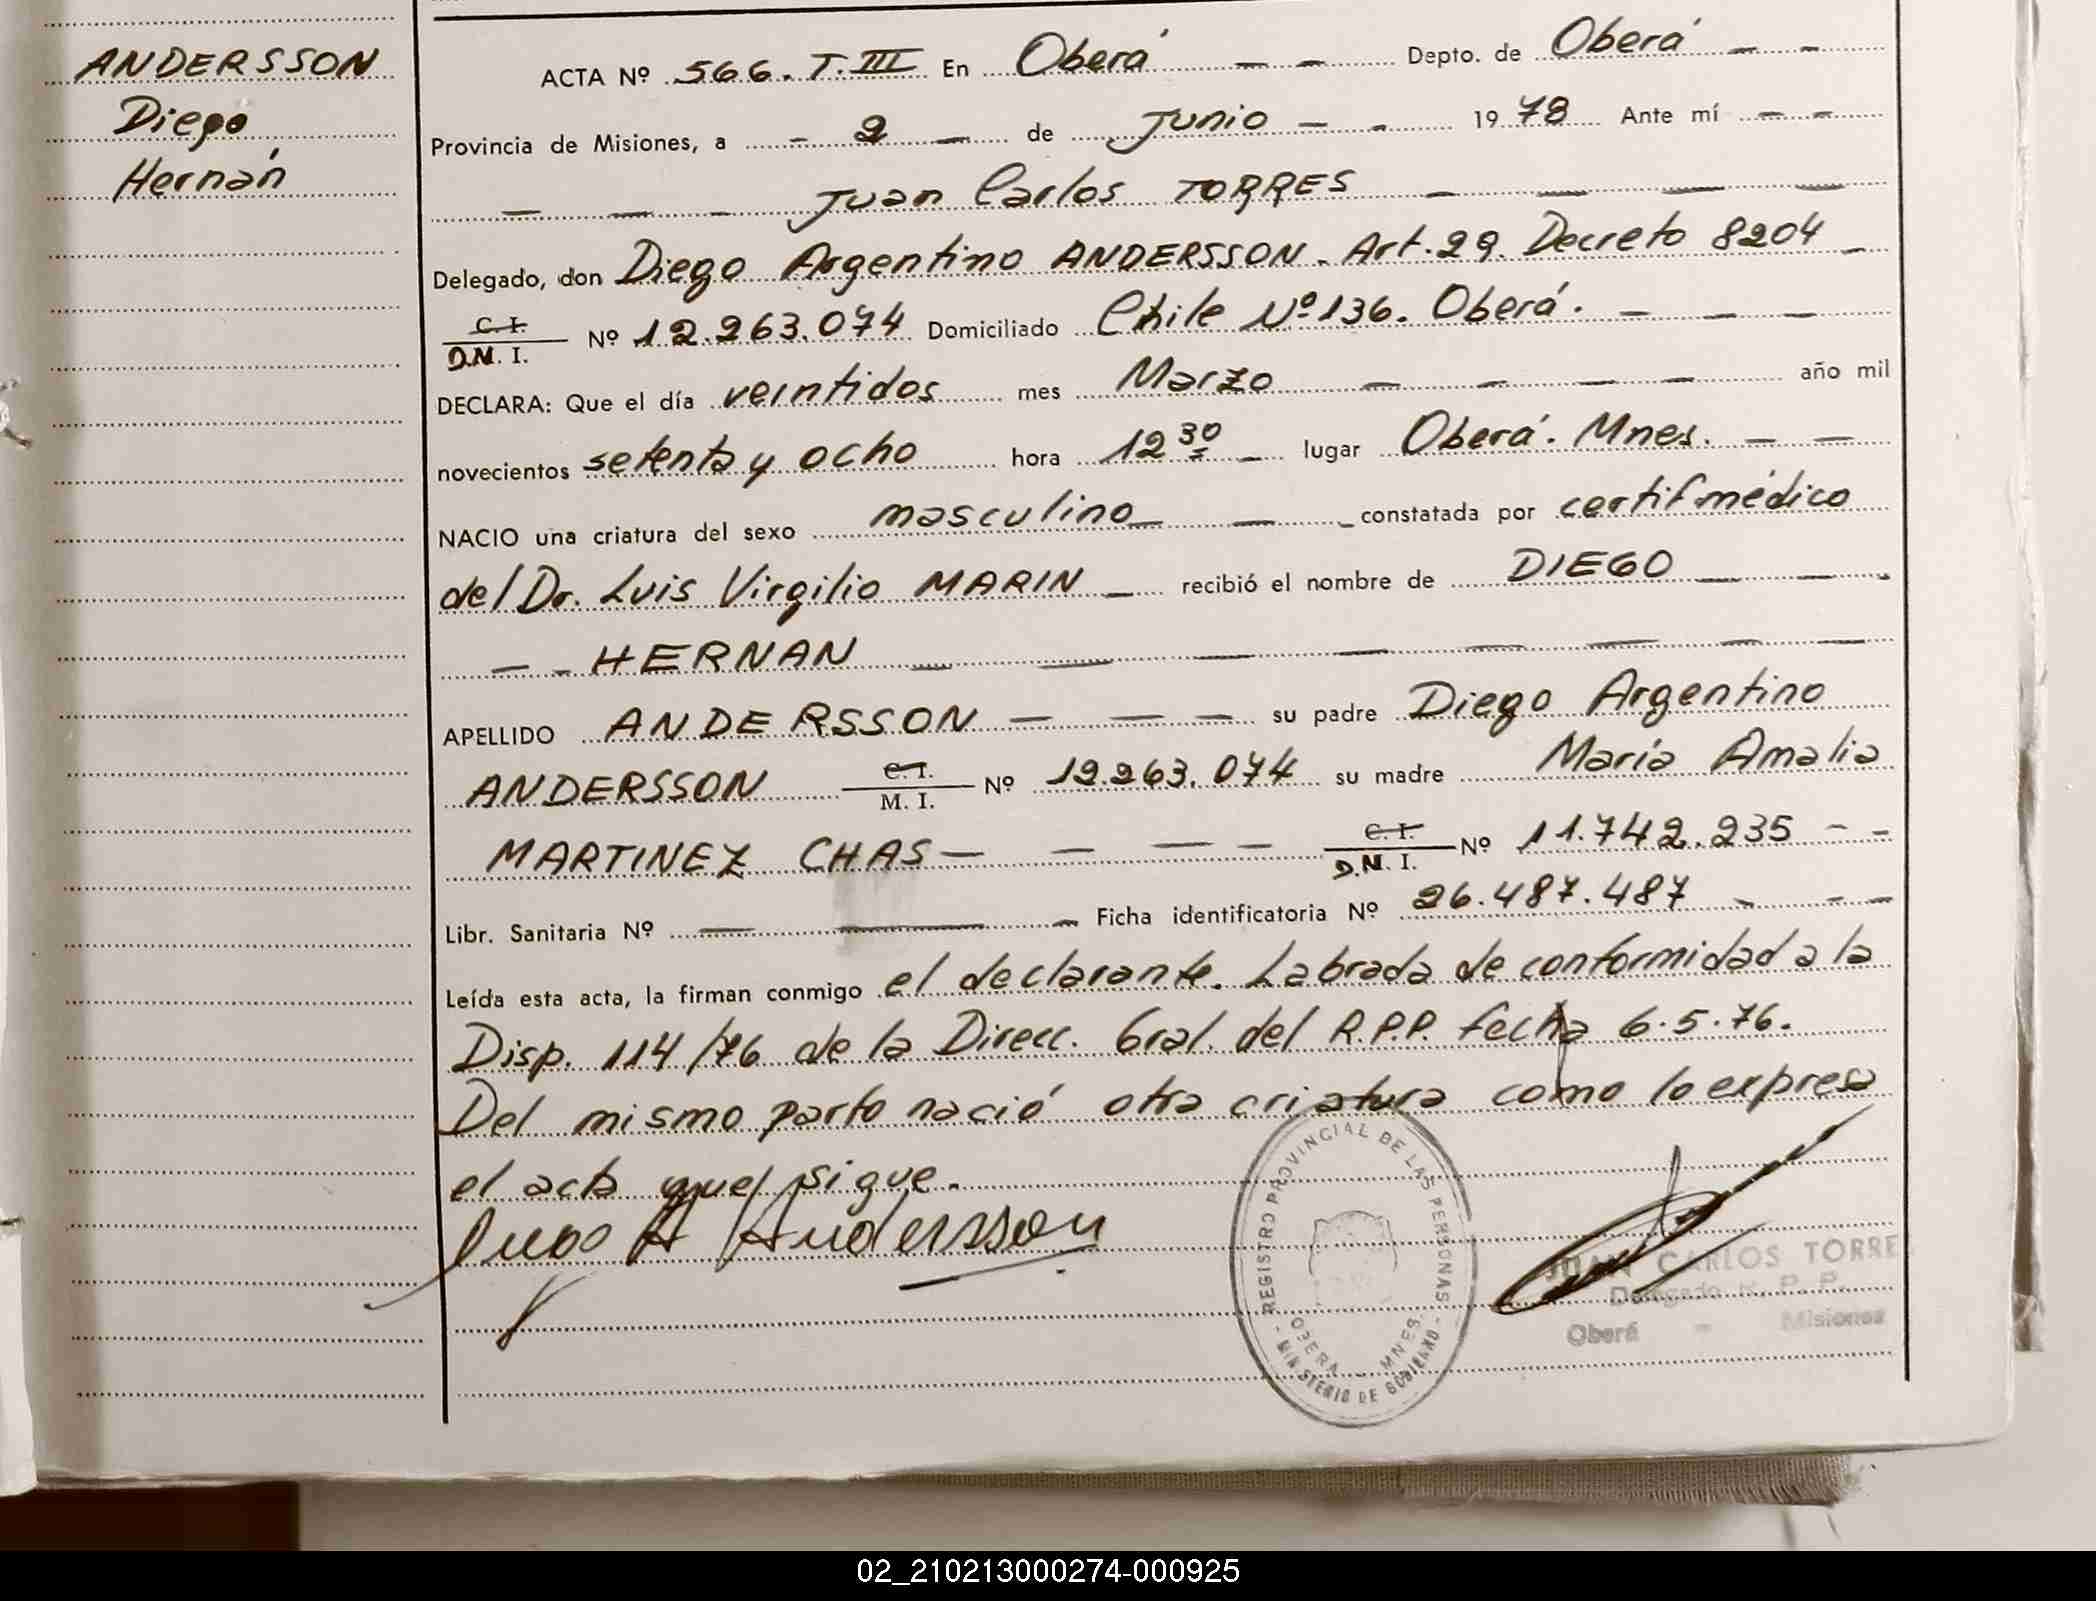 ANDERSSON
Diego
Hernán
ACTA Nº 566. T. III En Oberá - - Depto. de Oberá - -
Provincia de Misiones, a - 2 - de Junio - - 1978 Ante mí - -
- - - Juan Carlos TORRES - - - -
Delegado, don Diego Argentino ANDERSSON. Art. 29. Decreto 8204 -
C. I.
D.N. I. Nº 12.263.074 Domiciliado Chile Nº 136. Oberá. - - -
DECLARA: Que el día veintidos mes Marzo - - - - año mil
novecientos setenta y ocho hora 12 30 - lugar Oberá. Mnes. - -
NACIO una criatura del sexo masculino - - - constatada por certif médico
del Dr. Luis Virgilio MARIN - recibió el nombre de DIEGO - - -
- - HERNAN - - - - - - -
APELLIDO ANDERSSON - - - su padre Diego Argentino
ANDERSSON C. I.
M. I. Nº 12.263.074 su madre María Amalia
MARTINEZ CHAS - - - - C. I.
D.N. I. Nº 11.742.235 - -
Libr. Sanitaria Nº - - - Ficha identificatoria Nº 26.487.487 - - -
Leída esta acta, la firman conmigo el declarante. Labrada de conformidad a la
Disp. 114/76 de la Direcc. Gral. del R.P.P. fecha 6.5.76.
Del mismo parto nació otra criatura como lo expresa
el acta que sigue.
Diego A Andersson
REGISTRO PROVINCIAL DE LAS PERSONAS
OBERA - MNES.
- MINISTERIO DE GOBIERNO -
JUAN CARLOS TORRE
Delegado R. P. P.
Oberá - Misiones
02_210213000274-000925